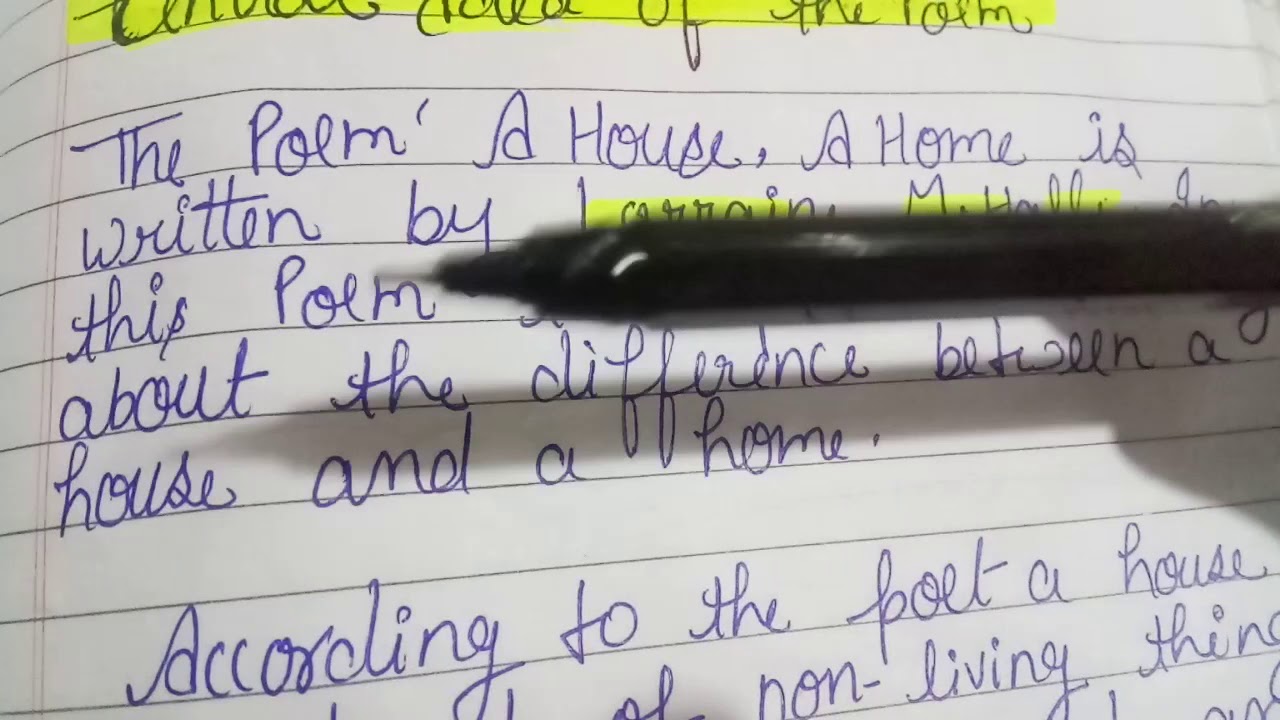 Idea of the Poem
The Poem' A House, A Home is
written by Lorrain M. Halli In
this Poem
about the difference between a
house and a home.
According to the poet a house
of non-living thing